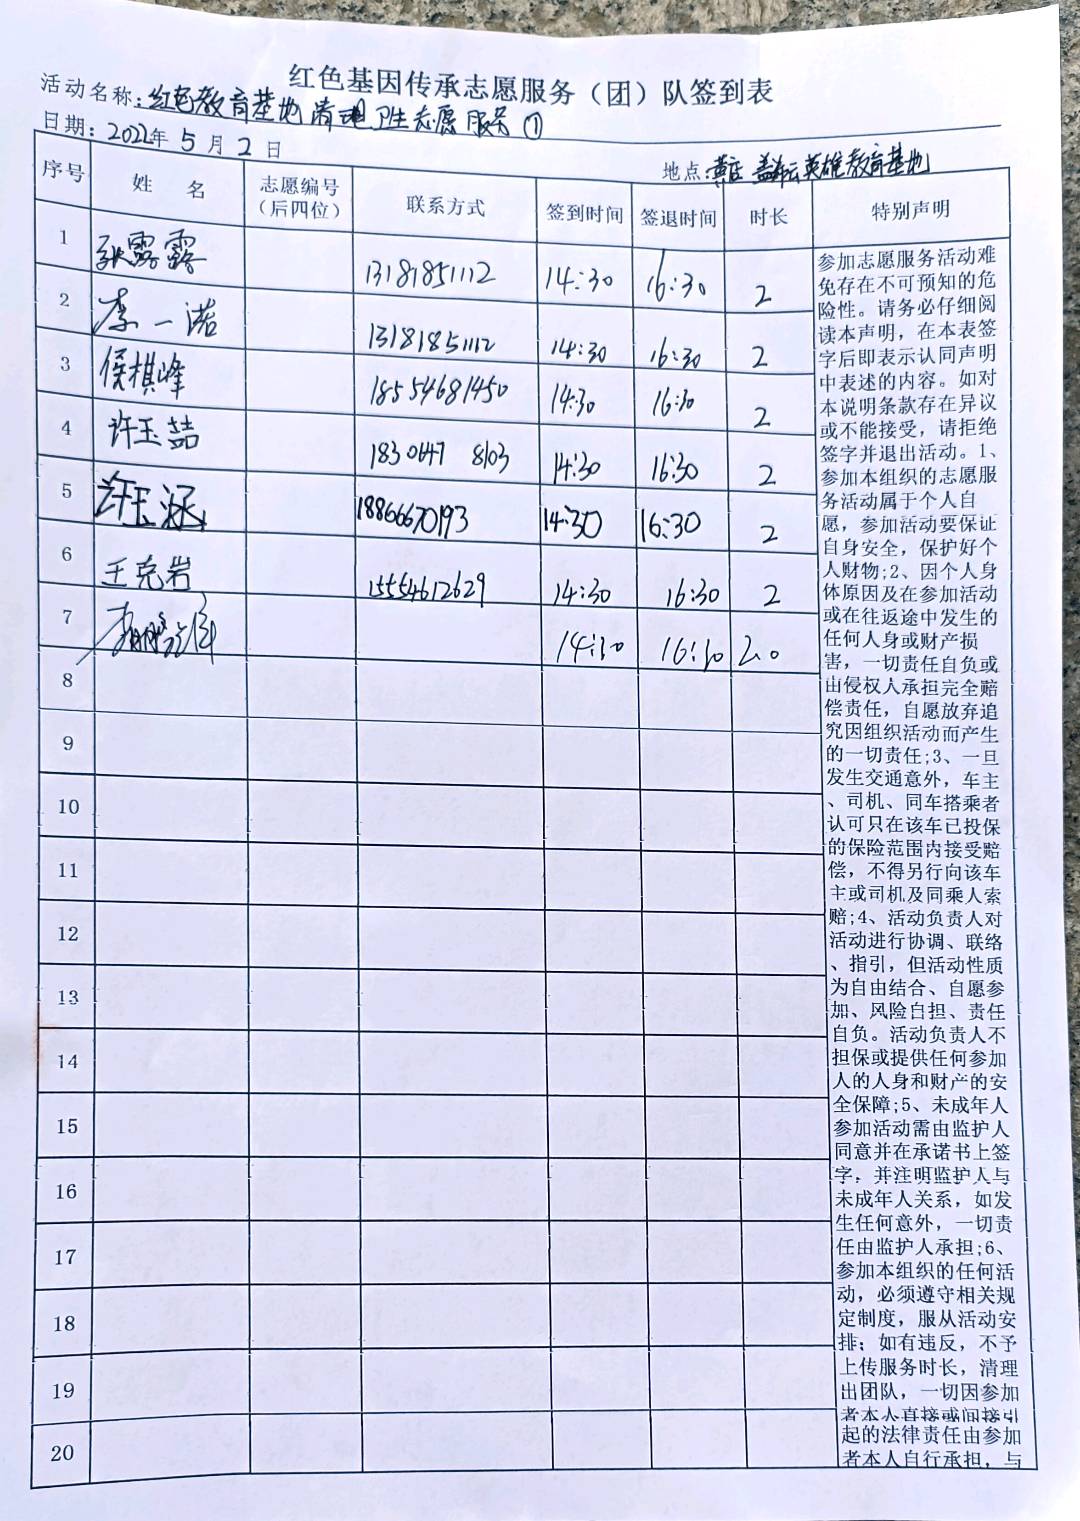 红色基因传承志愿服务（团）队签到表
活动名称：红色教育基地清理卫生志愿服务①
日期：2022年5月2日
地点：黄店 英雄教育基地
序号 姓 名 志愿编号（后四位） 联系方式 签到时间 签退时间 时长 特别声明
1 张露露 13181851112 14:30 16:30 2
2 李一诺 13181851112 14:30 16:30 2
3 侯棋峰 18554681450 14:30 16:30 2
4 许玉喆 1830647 8103 14:30 16:30 2
5 许玉涵 18866670193 14:30 16:30 2
6 王克岩 15554612629 14:30 16:30 2
7 14:30 16:30 2.0
8
9
10
11
12
13
14
15
16
17
18
19
20
参加志愿服务活动难
免存在不可预知的危
险性。请务必仔细阅
读本声明，在本表签
字后即表示认同声明
中表述的内容。如对
本说明条款存在异议
或不能接受，请拒绝
签字并退出活动。1、
参加本组织的志愿服
务活动属于个人自
愿，参加活动要保证
自身安全，保护好个
人财物;2、因个人身
体原因及在参加活动
或在往返途中发生的
任何人身或财产损
害，一切责任自负或
由侵权人承担完全赔
偿责任，自愿放弃追
究因组织活动而产生
的一切责任;3、一旦
发生交通意外，车主
、司机、同车搭乘者
认可只在该车已投保
的保险范围内接受赔
偿，不得另行向该车
主或司机及同乘人索
赔;4、活动负责人对
活动进行协调、联络
、指引，但活动性质
为自由结合、自愿参
加、风险自担、责任
自负。活动负责人不
担保或提供任何参加
人的人身和财产的安
全保障;5、未成年人
参加活动需由监护人
同意并在承诺书上签
字，并注明监护人与
未成年人关系，如发
生任何意外，一切责
任由监护人承担;6、
参加本组织的任何活
动，必须遵守相关规
定制度，服从活动安
排；如有违反，不予
上传服务时长，清理
出团队，一切因参加
者本人直接或间接引
起的法律责任由参加
者本人自行承担，与